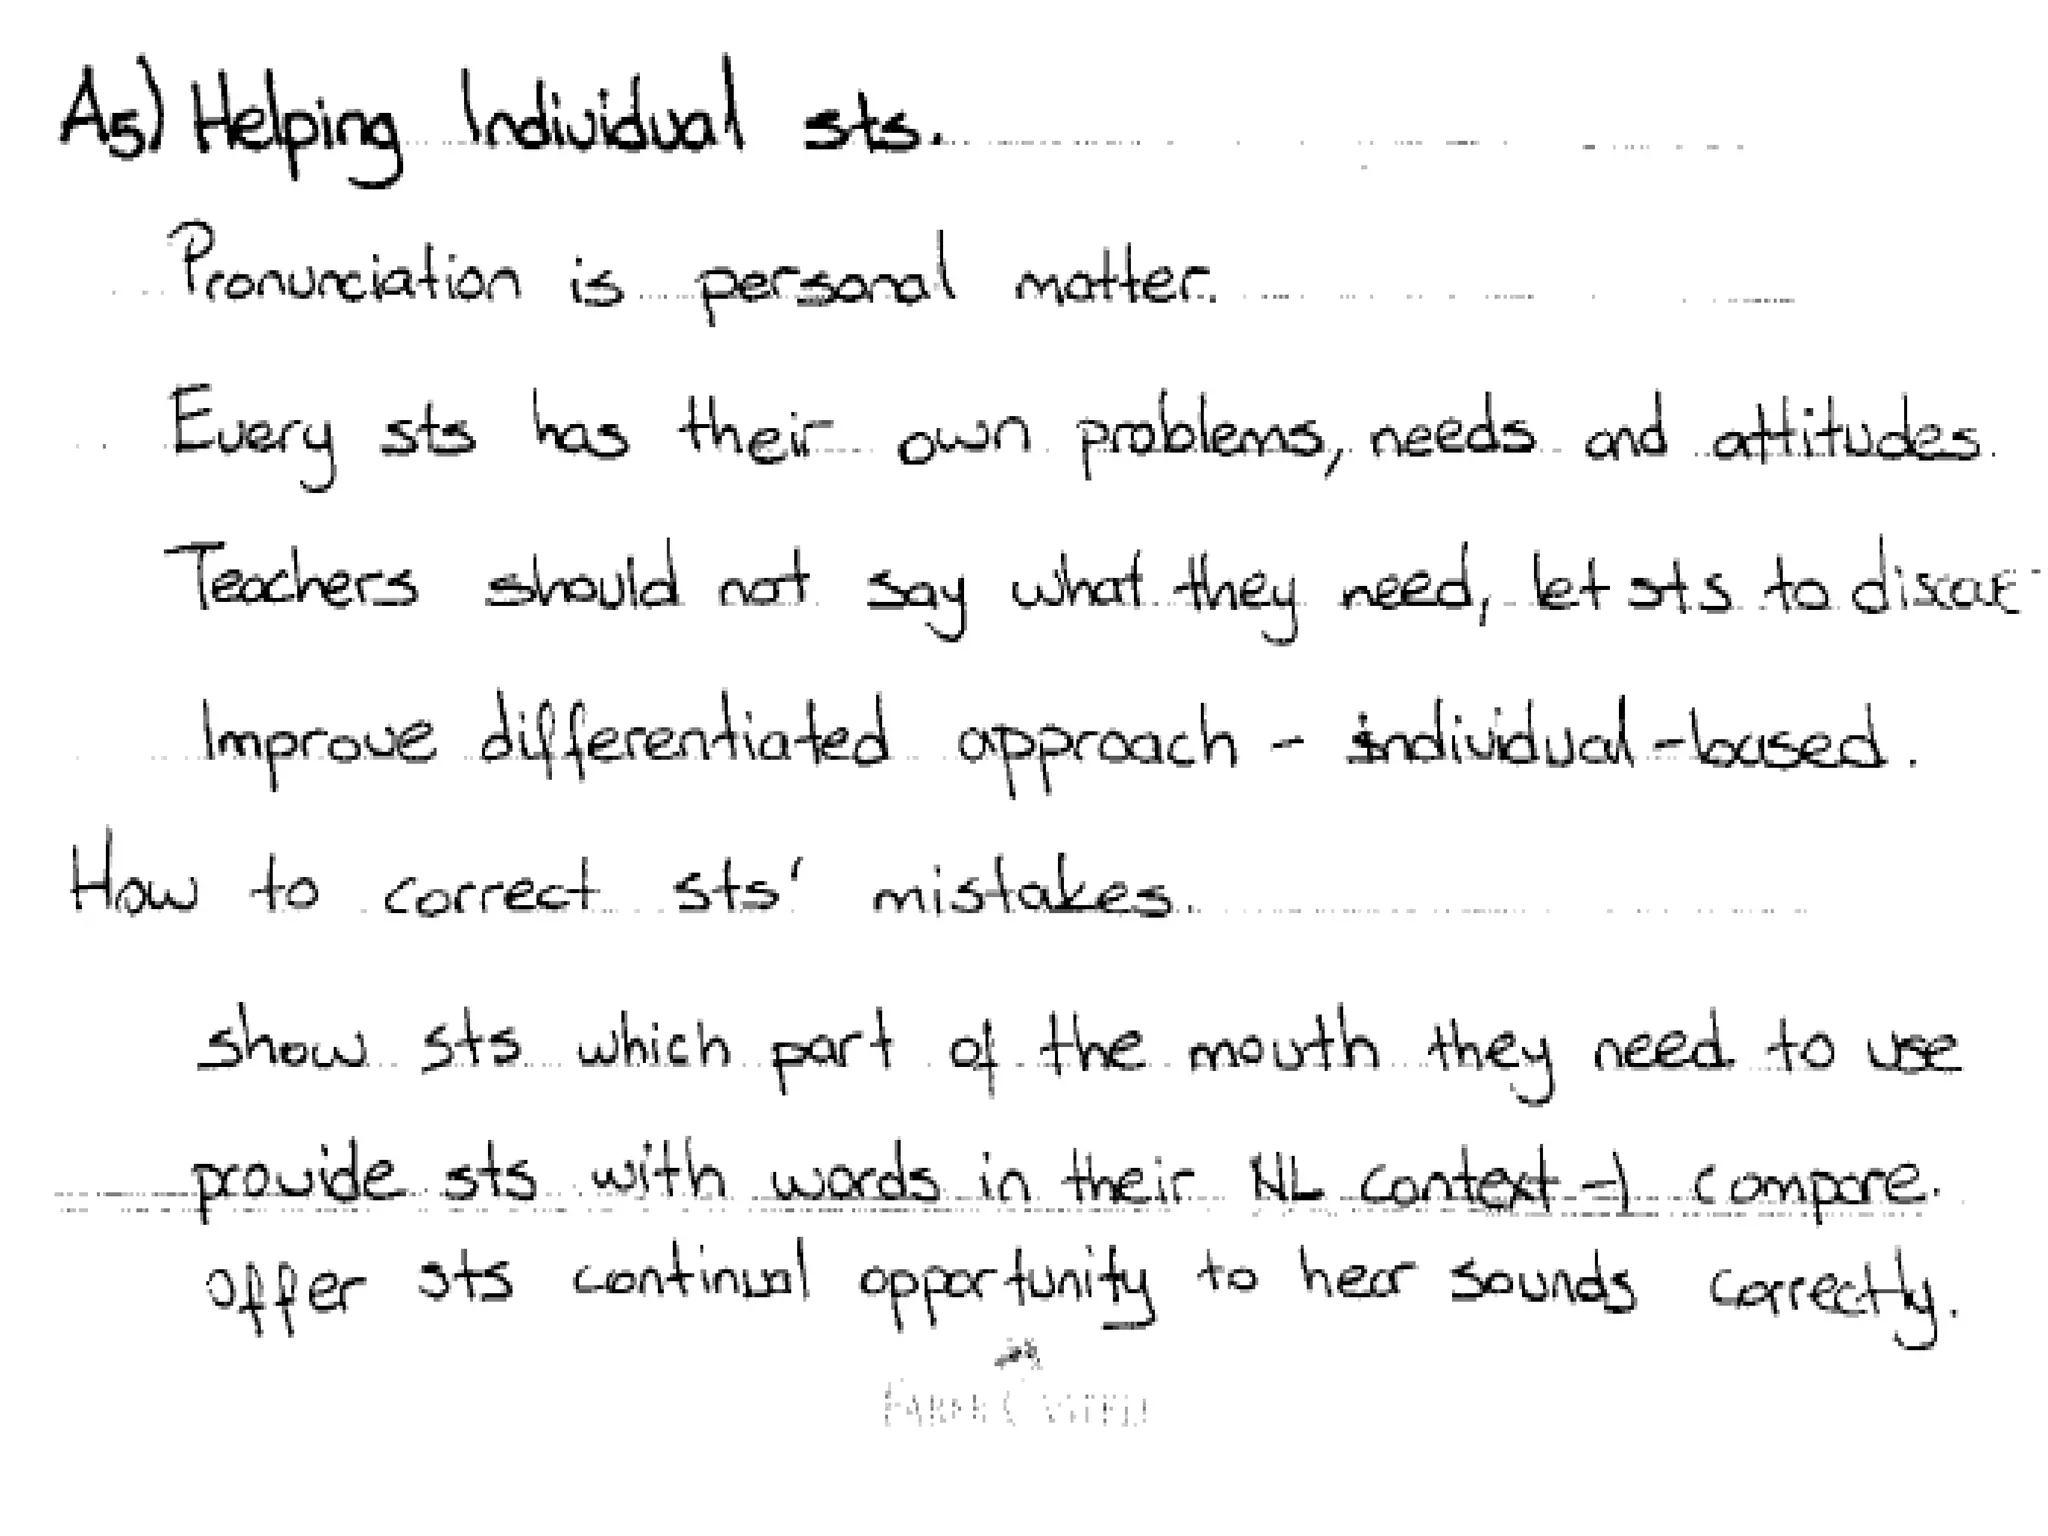 A5) Helping Individual sts.
Pronunciation is personal matter.
Every sts has their own problems, needs and attitudes.
Teachers should not say what they need, let sts to
Improve differentiated approach - individual-based.
How to correct sts' mistakes.
show sts which part of the mouth they need to use
provide sts with words in their NL context → compare.
offer sts continual opportunity to hear sounds correctly.